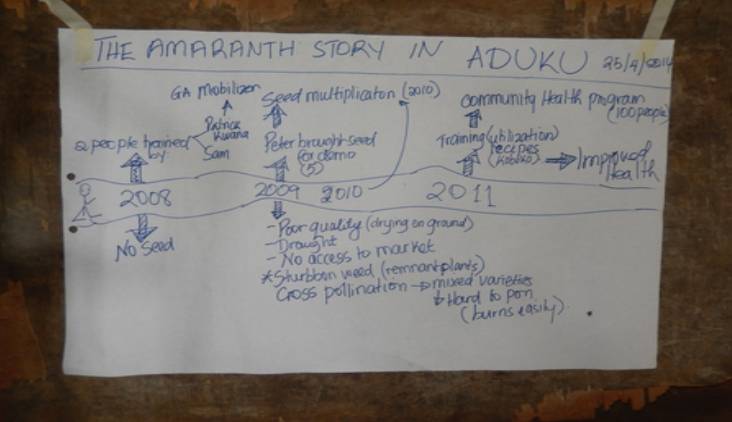 THE AMARANTH STORY IN ADUKU 25/4/2014
GA Mobilizer
Patrick
2 people trained
by:
Sam
2008
No Seed
Seed multiplicaton (2010)
Peter brought seed
for demo
(5)
2009
2010
- Poor quality (drying on ground)
- Drought
- No access to market
* Sturbbon weed (remnant plants)
Cross pollination → mixed varieties
Hard to pop
(burns easily).
Community Health program
(100 people)
Training (utilization)
recipes
→ Improved
Health
2011